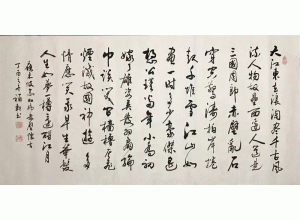 大江東去浪淘盡千古風
流人物故壘西邊人道是
三國周郎赤壁亂石
穿空驚濤拍岸捲
起千堆雪江山如
畫一時多少豪傑遙
想公瑾當年小喬初
嫁了雄姿英發羽扇綸
巾談笑間檣櫓灰飛
煙滅故國神遊多
情應笑我早生華髮
人生如夢一尊還酹江月
蘇東坡念奴嬌赤壁懷古
丁酉之冬